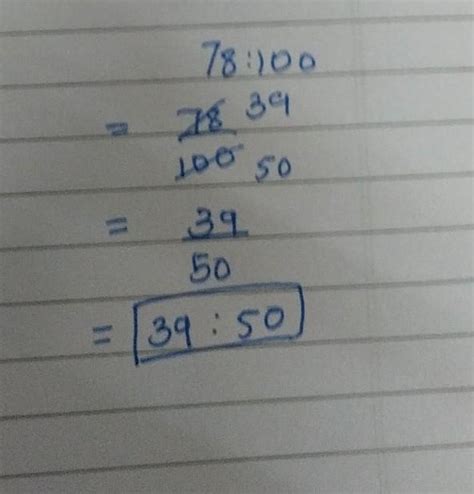 78:100
= 78 39
100 50
= 39
50
= 39 : 50